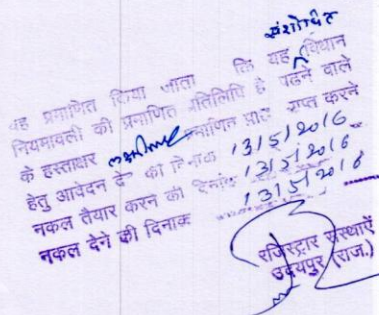 संशोधित
यह प्रमाणित किया जाता कि यह विधान
नियमावली की प्रमाणित प्रतिलिपि है पढने वाले
के हस्ताक्षर प्रमाणित प्राप्त करने
हेतु आवेदन देने की दिनांक 13/5/2016
नकल तैयार करने की दिनांक 13/5/2016
नकल देने की दिनांक 13/5/2016
रजिस्ट्रार संस्थाऐं
उदयपुर (राज.)